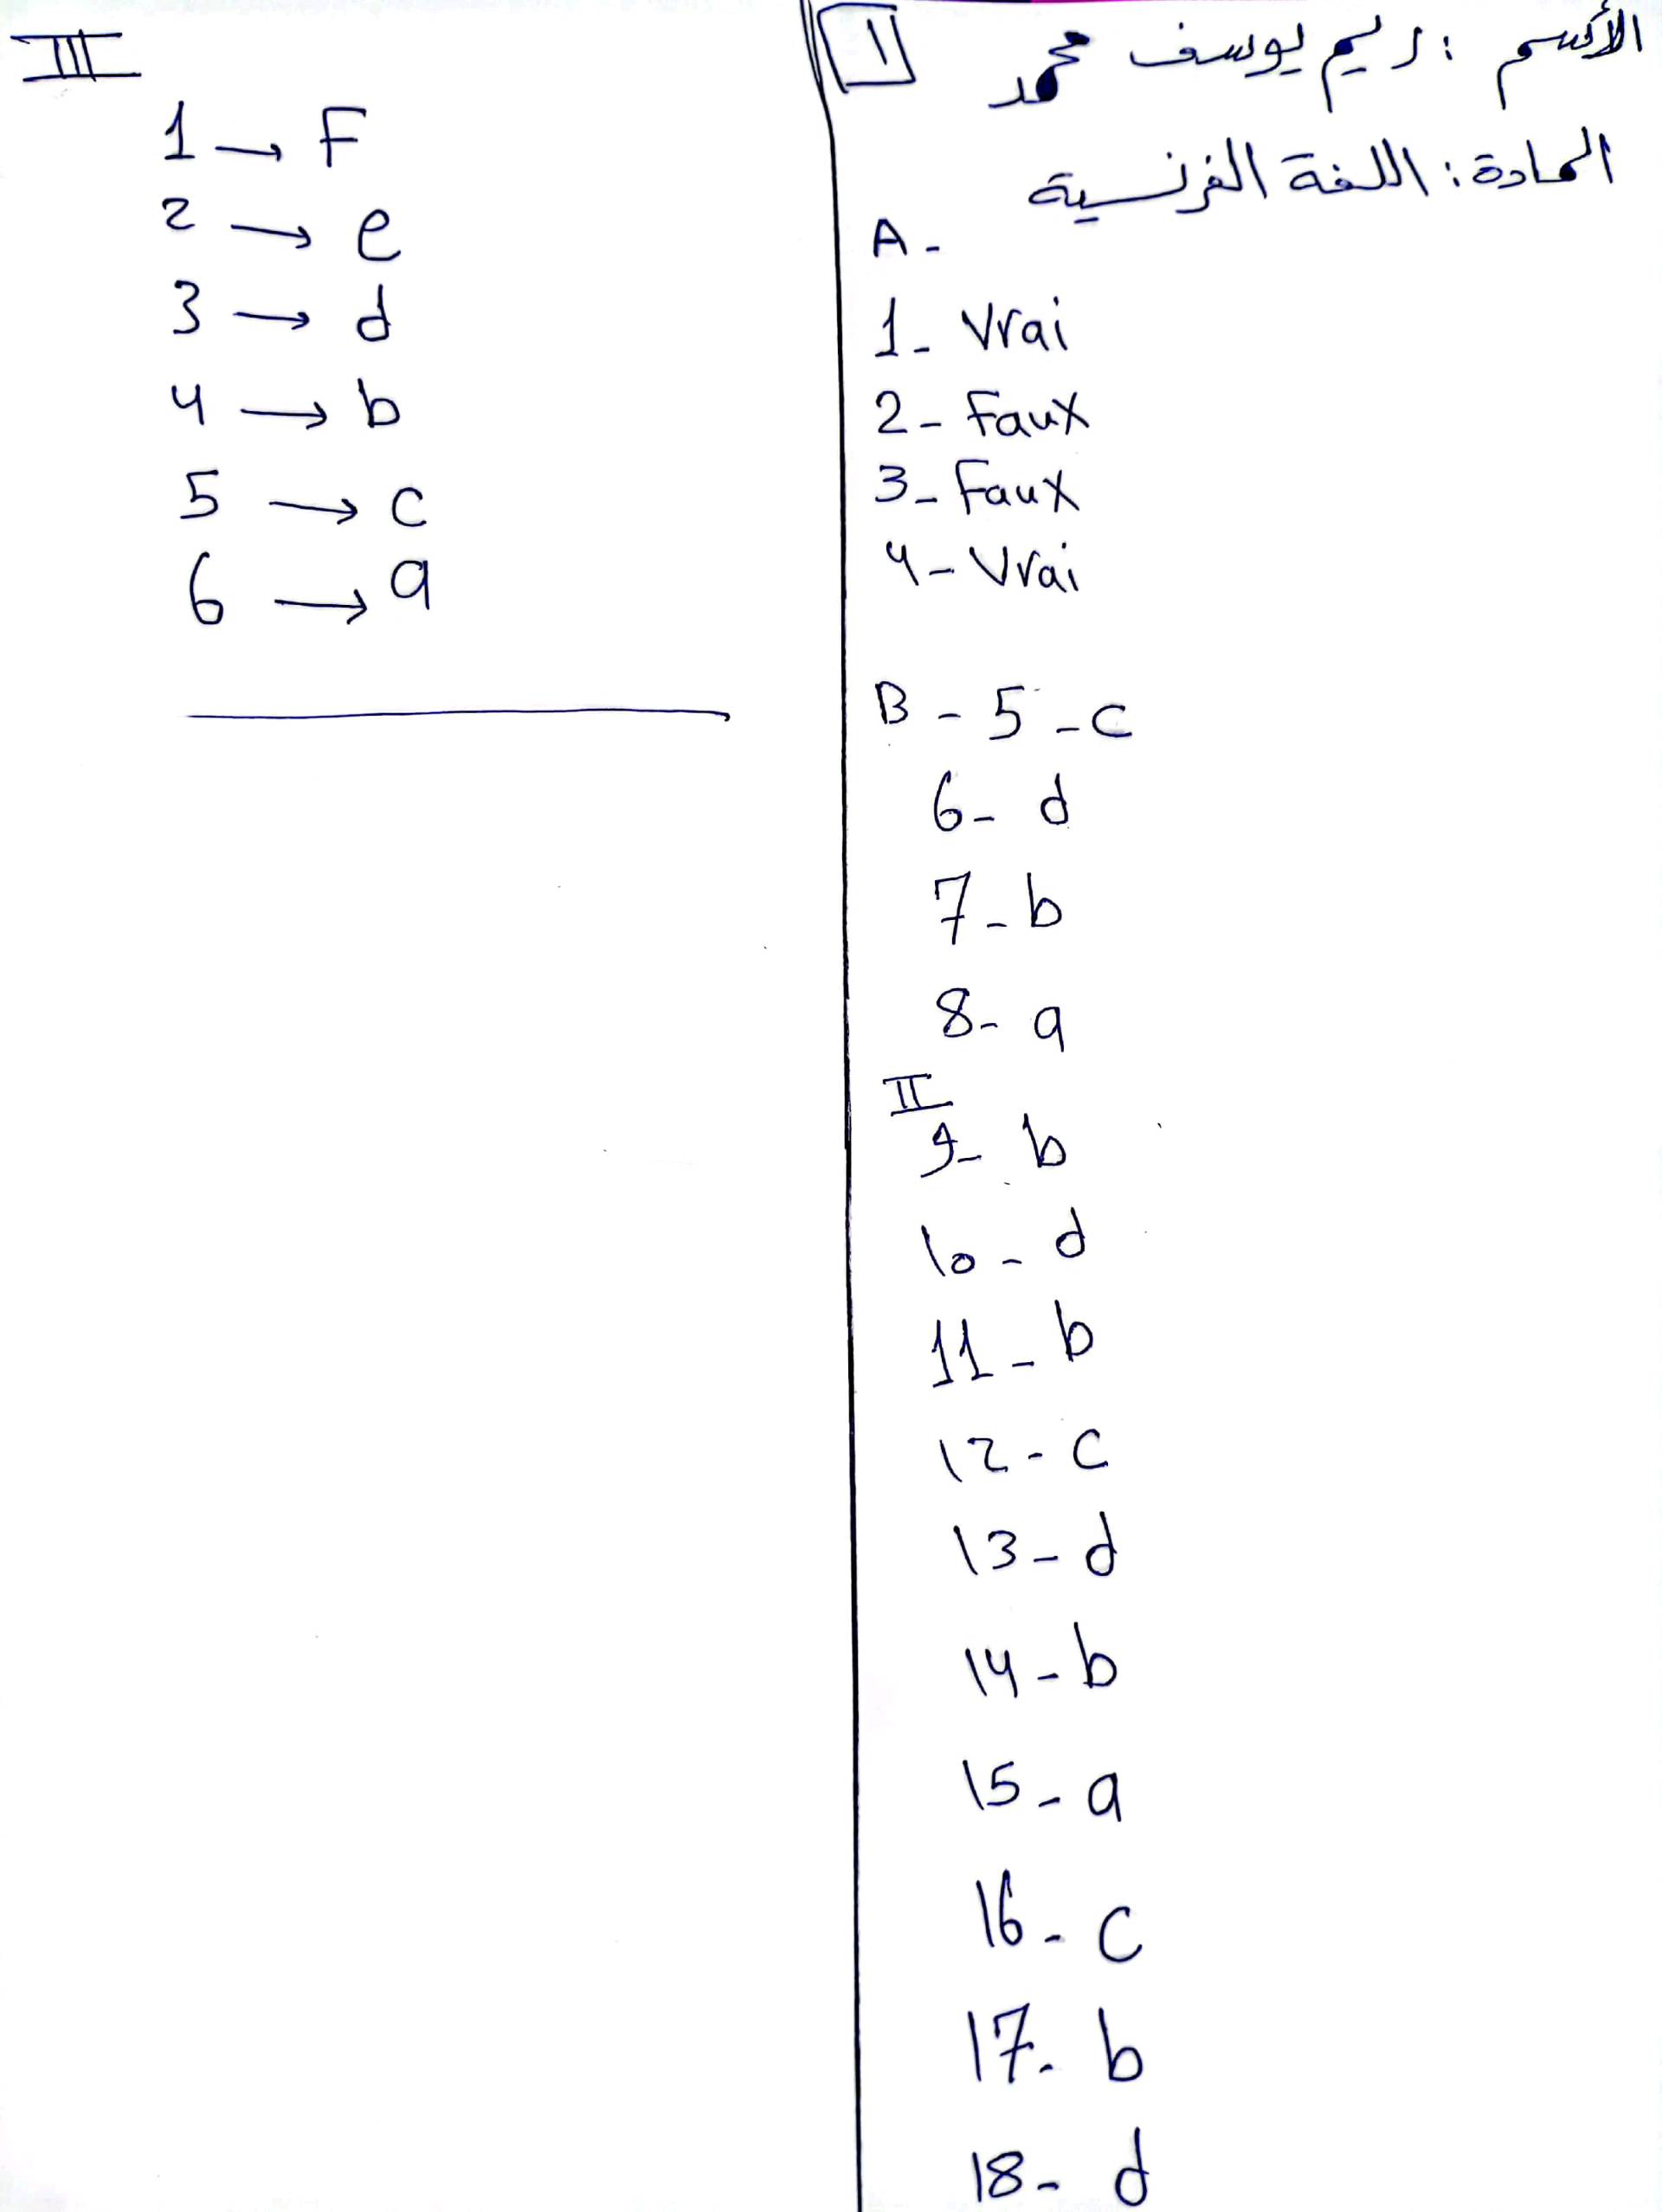 الأسم : ريم يوسف محمد
المادة : اللغة الفرنسية
1
A -
1- Vrai
2- Faux
3- Faux
4- Vrai
B - 5 - c
6- d
7- b
8- a
II
9- b
10- d
11- b
12- c
13- d
14- b
15- a
16- c
17- b
18- d
III
1 → F
2 → e
3 → d
4 → b
5 → c
6 → a